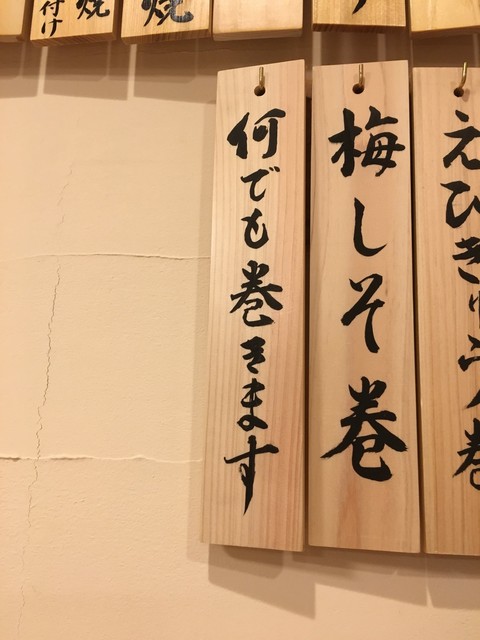 付け
焼
焼
えびきゅう巻
梅しそ巻
何でも巻きます